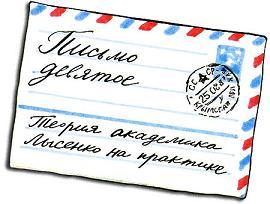 Письмо
девятое
Теория академика
Лысенко на практике